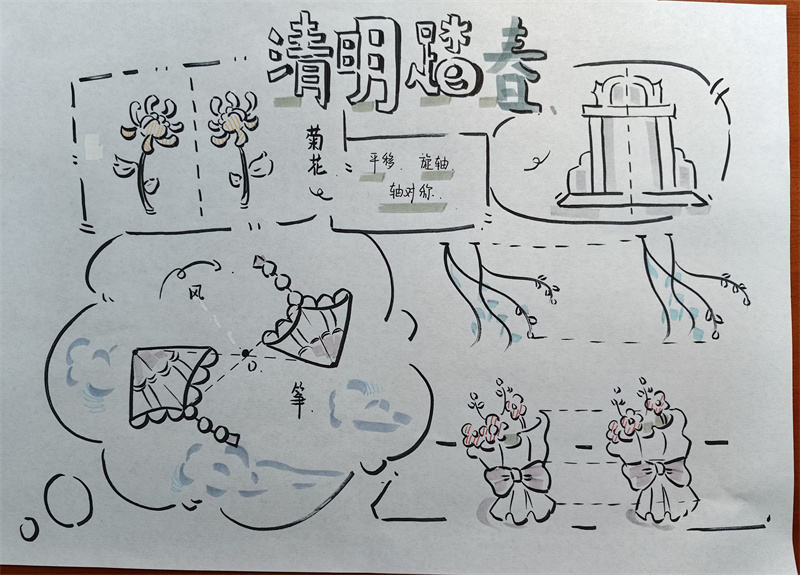 清明踏春
菊花
平移、旋轴
轴对称
风
O
筝